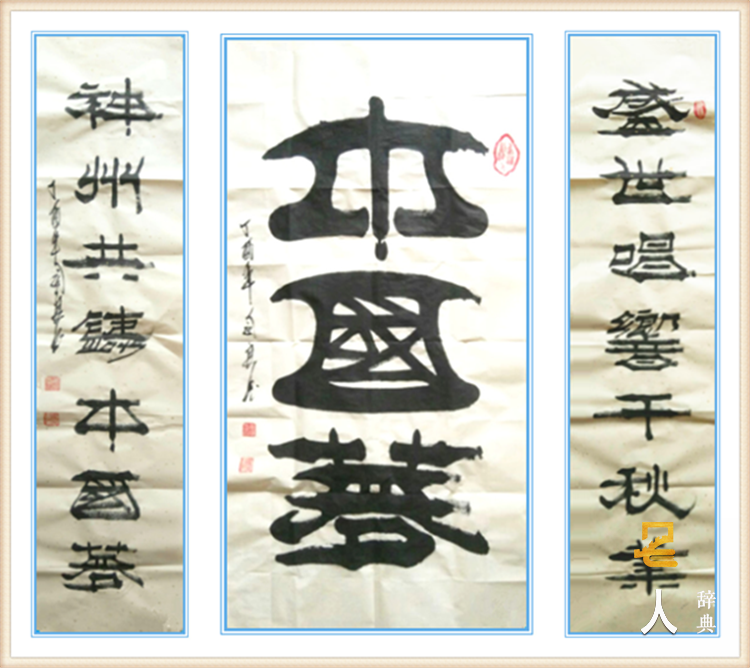 盛世唱響千秋
中國夢
丁酉年
神州共鑄中國夢
丁酉年
名人辞典